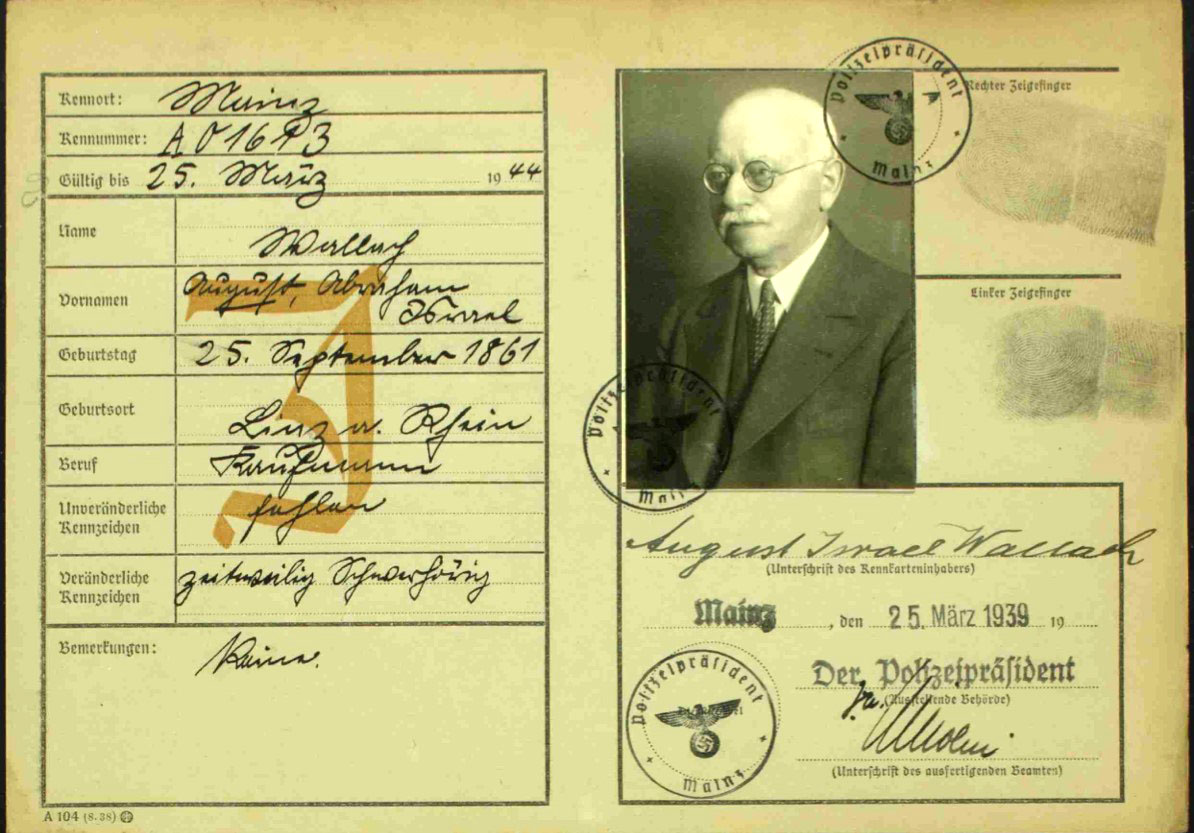 Kennort: Mainz
Kennummer: A 01693
Gültig bis 25. März 1944
Name Wallach
Vornamen August, Abraham
Israel
Geburtstag 25. September 1861
Geburtsort Linz a. Rhein
Beruf Kaufmann
Unveränderliche fehlen
Kennzeichen
Veränderliche zeitweilig Schwerhörig
Kennzeichen
Bemerkungen: Keine.
J
A 104 (8. 38)
Polizeipräsident
Mainz
Rechter Zeigefinger
Linker Zeigefinger
Polizeipräsident
Mainz
August Israel Wallach
(Unterschrift des Kennkarteninhabers)
Mainz, den 25. März 1939 19
Der Polizeipräsident
(Ausstellende Behörde)
(Unterschrift des ausfertigenden Beamten)
Polizeipräsident
Mainz